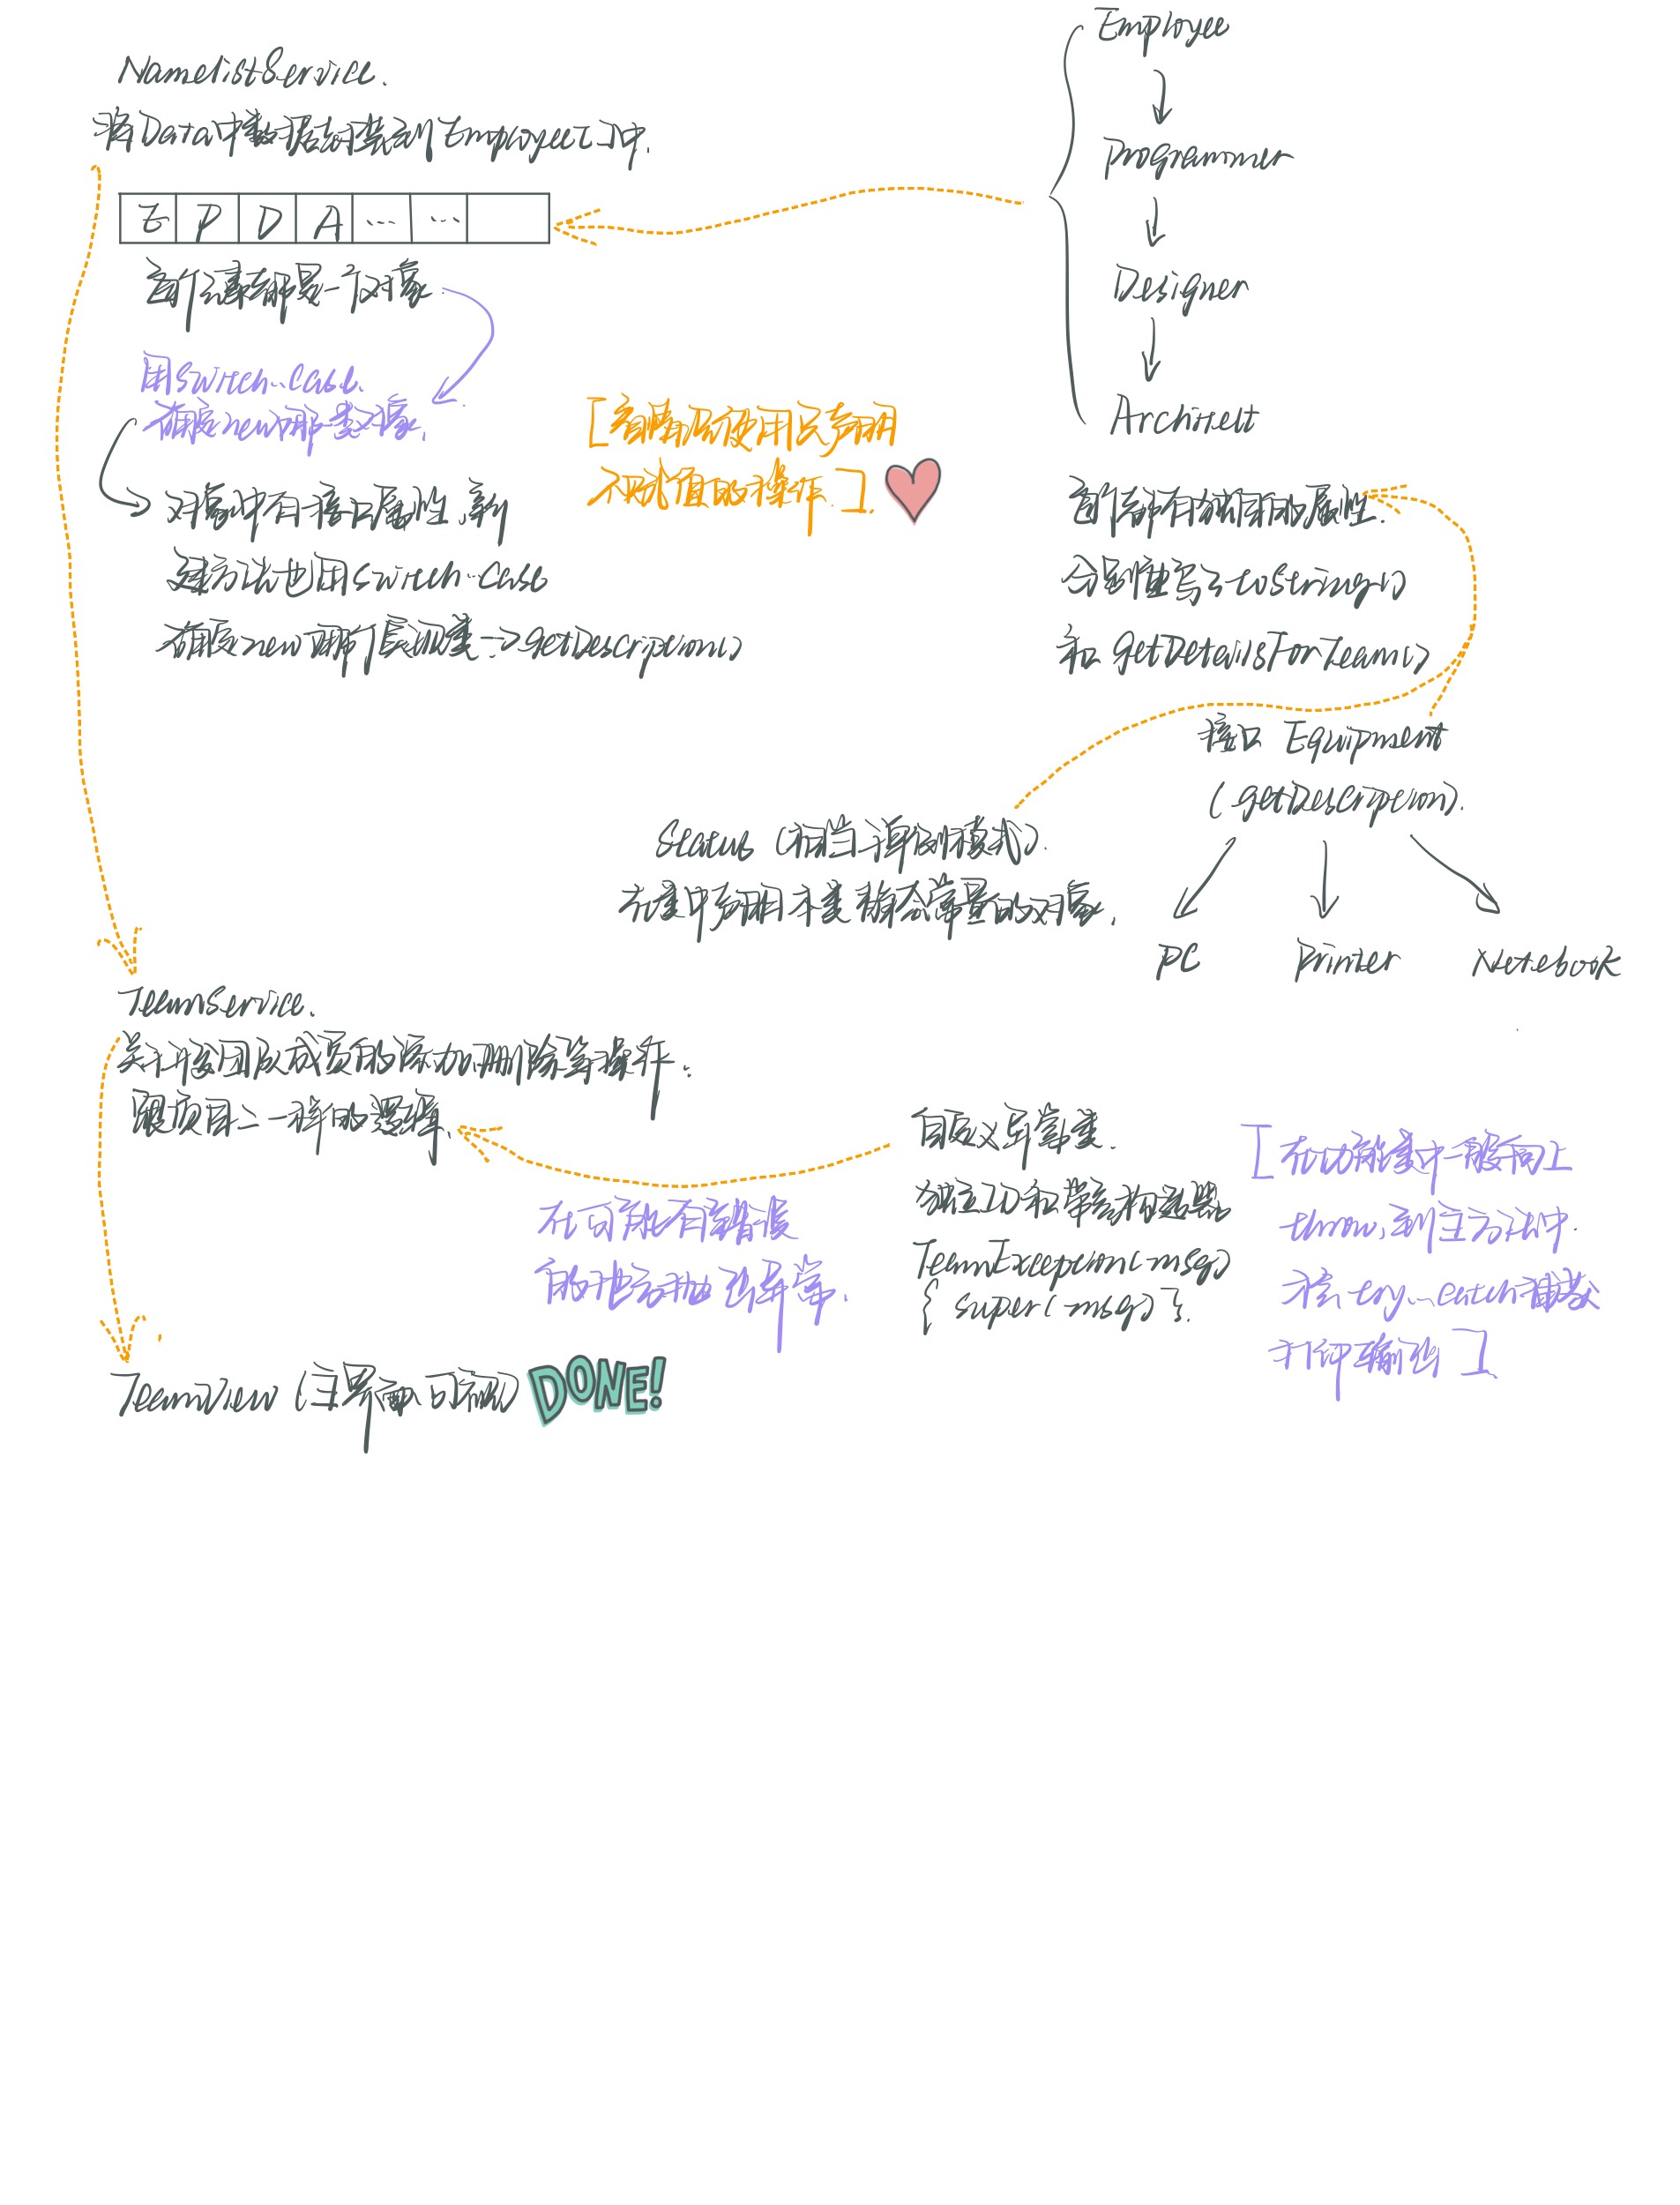 NamelistService.
将Data中数据封装到Employee[]中.
E P D A ... ...
每个元素都是一个对象.
用Switch...Case.
确定new哪一类对象.
对象中有接口属性,新
建方法也用Switch...Case
确定new哪个实现类->getDescription()
[ 有时候使用只声明
不赋值的操作. ]
Employee
Programmer
Designer
Architect
每个都有独有的属性.
分别重写了toString()
和 getDetailsForTeam()
接口 Equipment
(getDescription).
PC Printer Notebook
Status (相当于单例模式).
在类中声明本类静态常量的对象.
TeamService.
关于开发团队成员的添加.删除等操作.
跟项目二一样的逻辑.
自定义异常类.
独立ID和带参构造器
TeamException(msg)
{ super(msg) }.
在可能有错误
的地方抛出异常.
[ 在功能类中一般向上
throw,到主方法中.
才会try...catch捕获
并打印输出 ]
TeamView (主界面可视)
DONE!